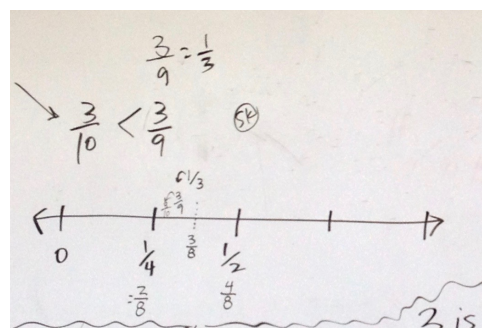 3/9 = 1/3
3/10 < 3/9
5K
1/3
3/9
0 1/4 3/8 1/2
= 2/8 4/8
3 is